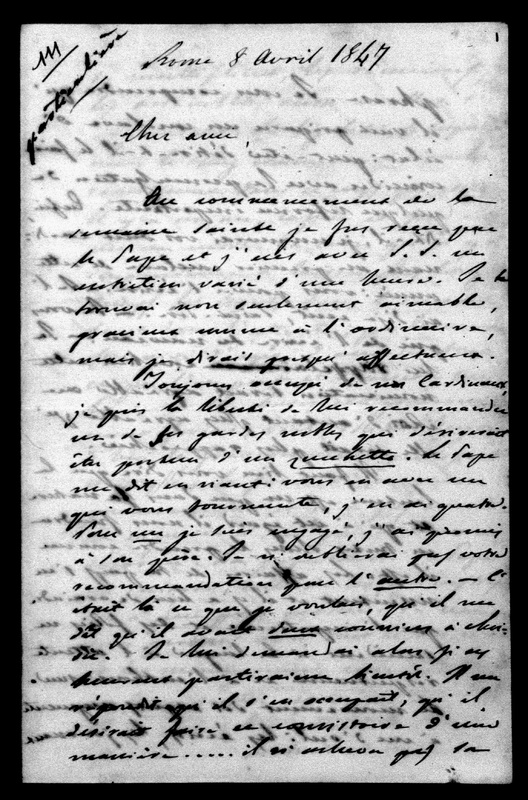 111
particulière
1
Rome 8 Avril 1847
Cher ami,
Au commencement de la
semaine sainte je fus reçu par
le Pape et j'eus avec S. S. un
entretien varié d'une heure. Je le
trouvai non seulement aimable,
gracieux comme à l'ordinaire,
mais je dirais presqu' affectueux.
Toujours occupé de nos Cardinaux,
je pris la liberté de lui recommander
un de ses gardes nobles qui désirerait
être porteur d'un zucchetto. Le Pape
me dit en riant vous en avez un
qui vous tourmente, j'en ai quatre.
Pour un je suis engagé, j'ai promis
à son père. Je n'oublierai pas votre
recommandation pour l'autre. — C'
était là ce que je voulais, qu'il me
dit qu'il avait deux courriers à choi-
sir. Je lui demandai alors si ces
heureux partiraient bientôt. Il me
répondit qu'il s'en occupait, qu'il
désirait faire ce consistoire d'une
manière ..... il n'acheva pas sa